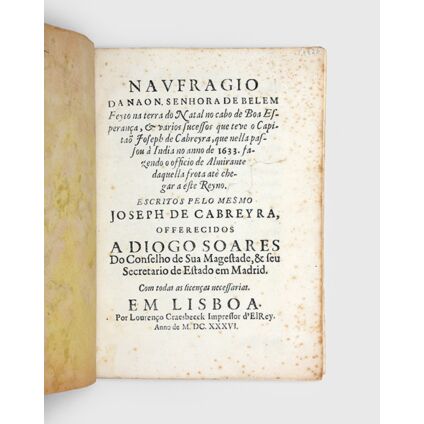 NAVFRAGIO
DA NAO N. SENHORA DE BELEM
Feyto na terra do Natal no cabo de Boa Es-
perança, & varios sucessos que teve o Capi-
taõ Joseph de Cabreyra, que nella pas-
sou à India no anno de 1633. fa-
zendo o officio de Almirante
daquella frota atè che-
gar a este Reyno.
ESCRITOS PELO MESMO
JOSEPH DE CABREYRA,
OFFERECIDOS
A DIOGO SOARES
Do Conselho de Sua Magestade, & seu
Secretario de Estado em Madrid.
Com todas as licenças necessarias.
EM LISBOA.
Por Lourenço Craesbeeck Impressor d'ElRey.
Anno de M. DC. XXXVI.